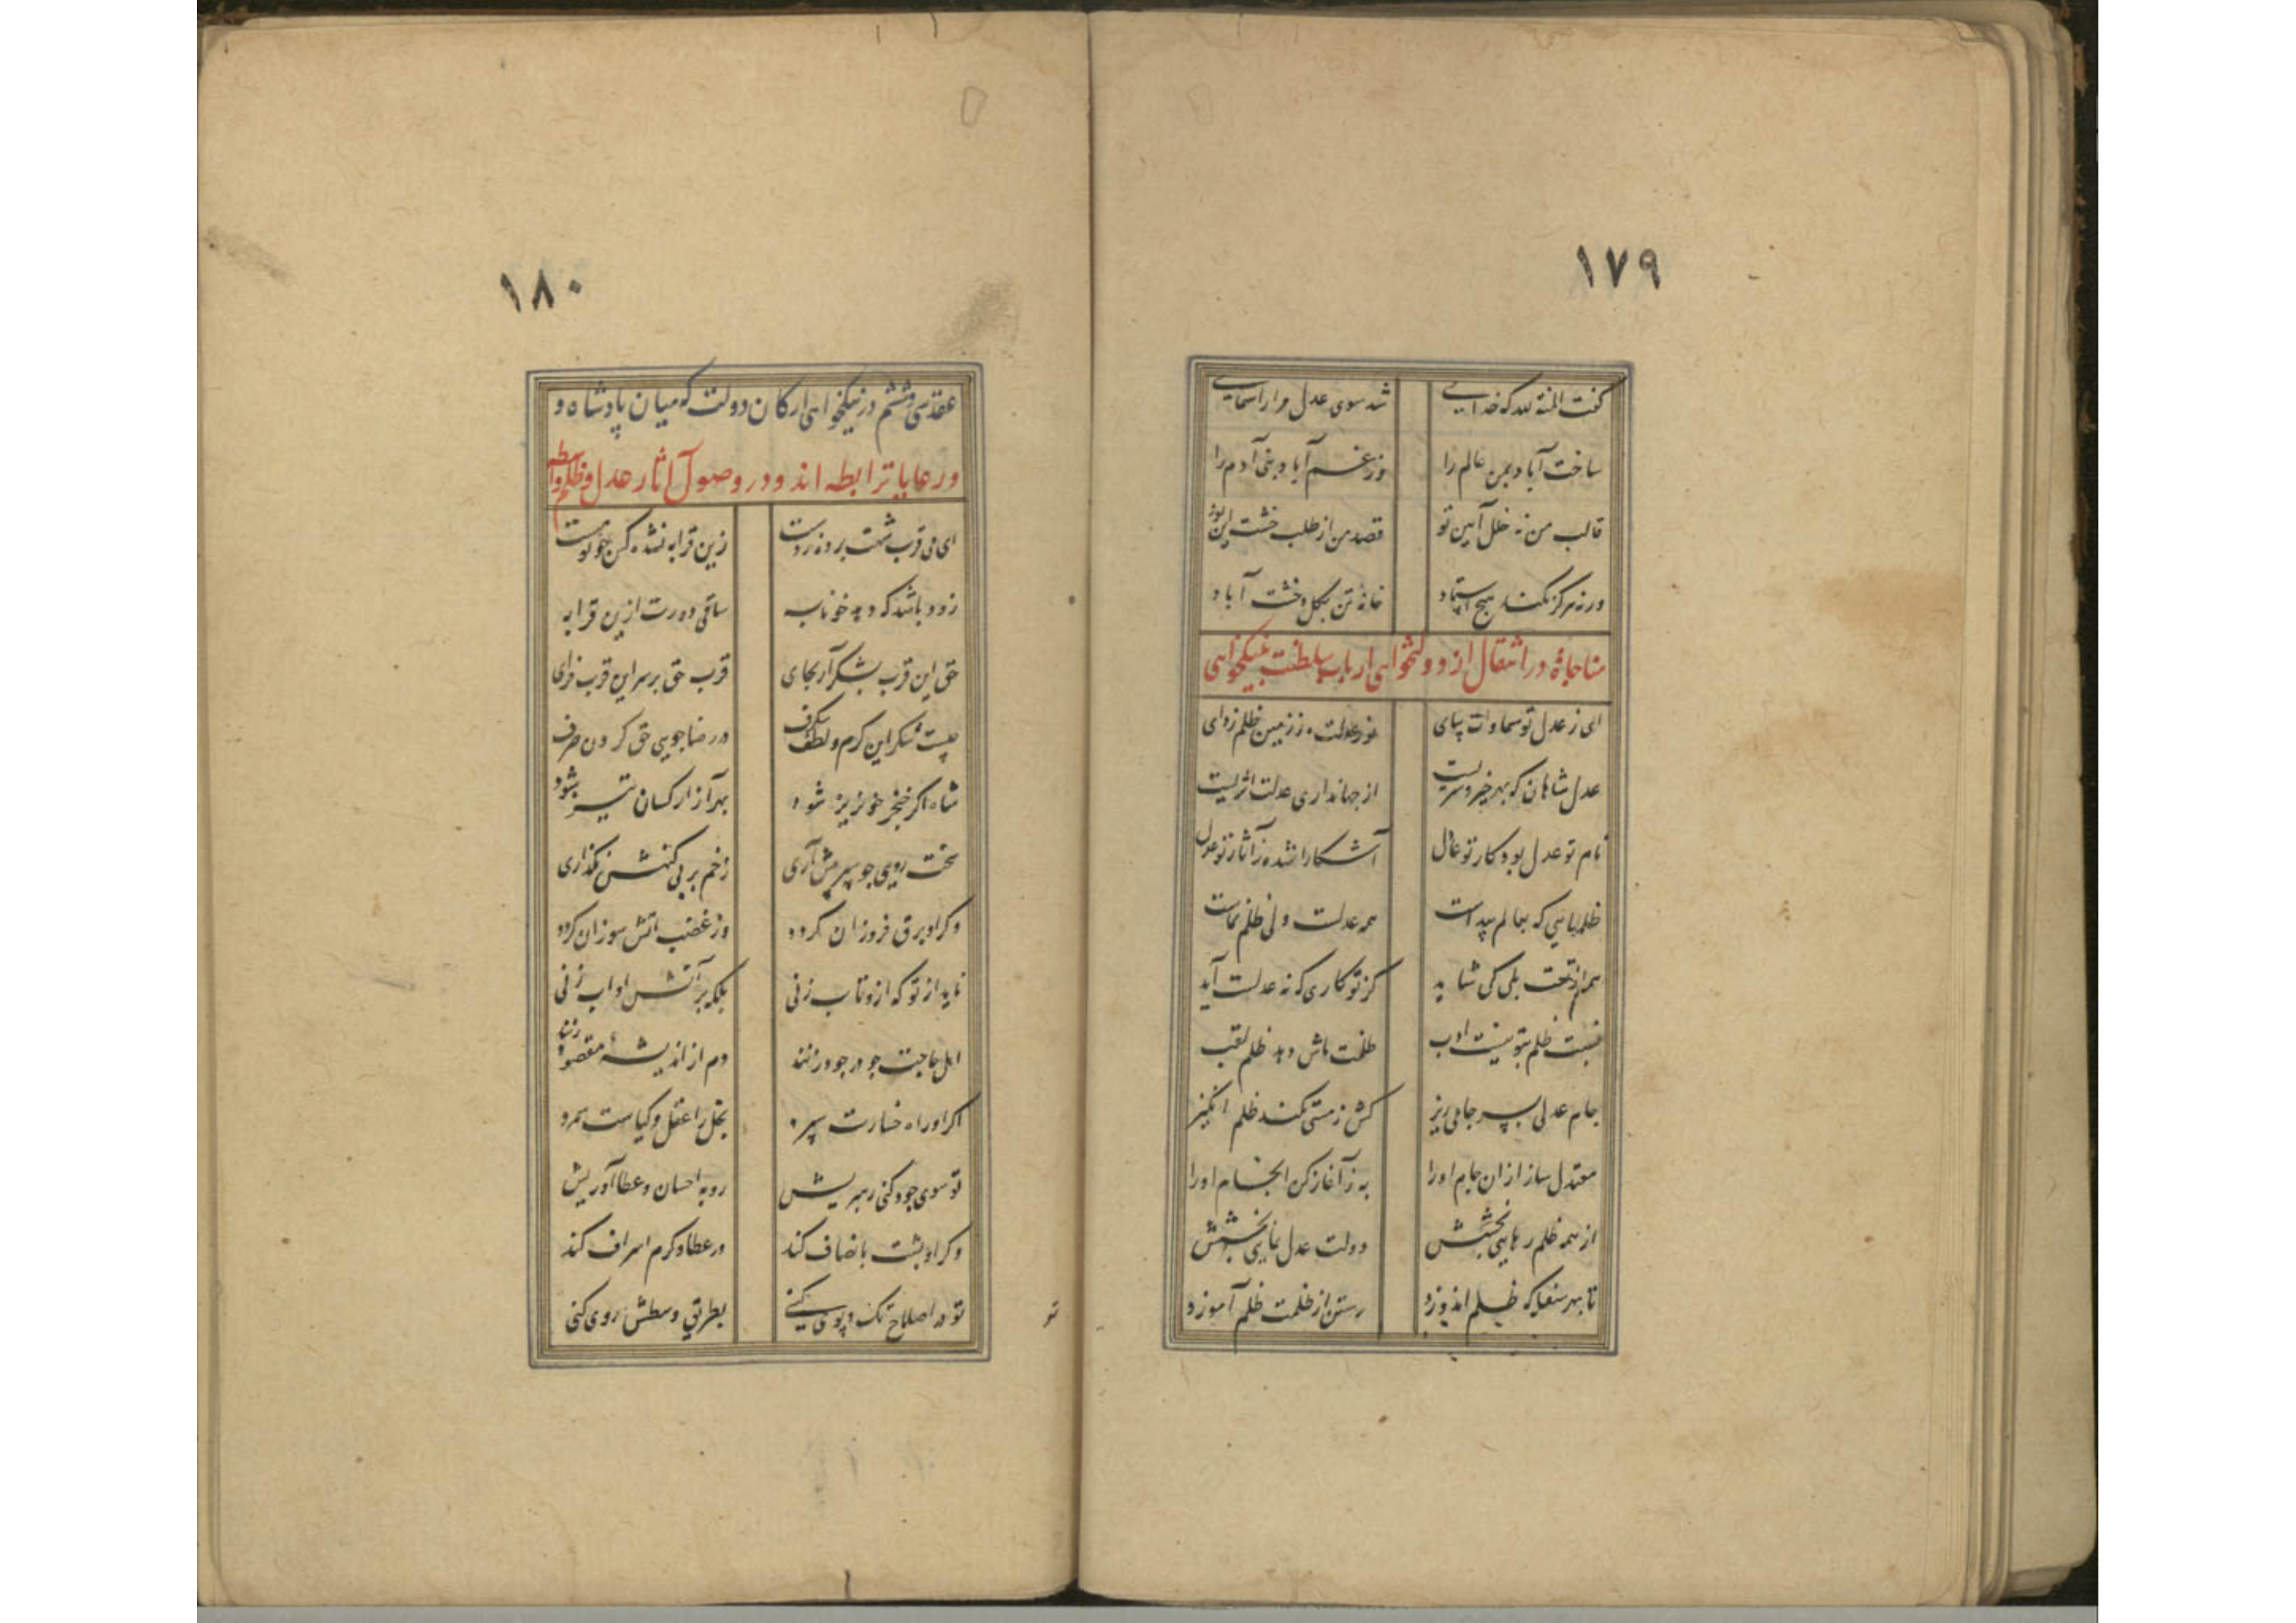 ۱۷۹
گفت المنة لله که خدایی شد سوی عدل مرا راهنمایی
ساخت آباد بمن عالم را وز غم آباد بنی آدم را
قالب من نه خلل آیین تو قصد من از طلب خشت این بود
ورنه هرگز نکند هیچ استاد خانه تن بکل و خشت آباد
مناجاة در انتقال از دولتخواهی ارباب سلطنت بنیکخواهی
ای ز عدل تو سماوات بپای نور عدلت ز زمین ظلم زدای
عدل شاهان که بهر خیر و شریست از جهانداری عدلت اثریست
نام تو عدل بود کار تو عدل آشکارا شده ز آثار تو عدل
ظلمهائیی که بعالم پیداست همه عدلست ولی ظلم نماست
بلی کی شاید کز تو کاری که نه عدلست آید
نسبت ظلم بتو نیست ادب ظلمت ماش دهد ظلم لقب
جام عدلی بسر جامی ریز کش ز مستی نکند ظلم انگیز
معتدل ساز ازان جام او را به ز آغاز کن انجام او را
از همه ظلم رهایی بخشش دولت عدل نمایی بخشش
تا بهر سفله که ظلم اندوزد رستن از ظلمت ظلم آموزد
۱۸۰
عقد سی و ششم در نیکخواهی ارکان دولت که میان پادشاه و
ورعایا رابطه اند و در وصول آثار عدل و ظلم واسطه
ای می قرب شهت برده ز دست زین قرابه نشده کس چو تو مست
زود باشد که دهد خونابه ساقی دورت ازین قرابه
حق این قرب بشکر آر بجای قرب حق بر سر این قرب فزای
چیست شکر این کرم و لطف شگرف در رضا جویی حق کردن صرف
شاه اگر خنجر خونریز شود بهر آزار کسان تیز شود
سخت رویی چو سپر پیش آری زخم بر بی گنهش نگذاری
وگر او برق فروزان گردد وز غضب آتش سوزان گردد
ناید از تو که ازو تاب زنی بلکه بر آتش او آب زنی
اهل حاجت چو در جود زنند دم از اندیشه مقصود زنند
اگر او راه خسارت سپرد بخل را عقل و کیاست شمرد
تو سوی جود کنی رهبریش رو به احسان و عطا آوریش
وگر او پشت بانصاف کند در عطا و کرم اسراف کند
تو در اصلاح تک و پوی کنی بطریق وسطش روی کنی
تو